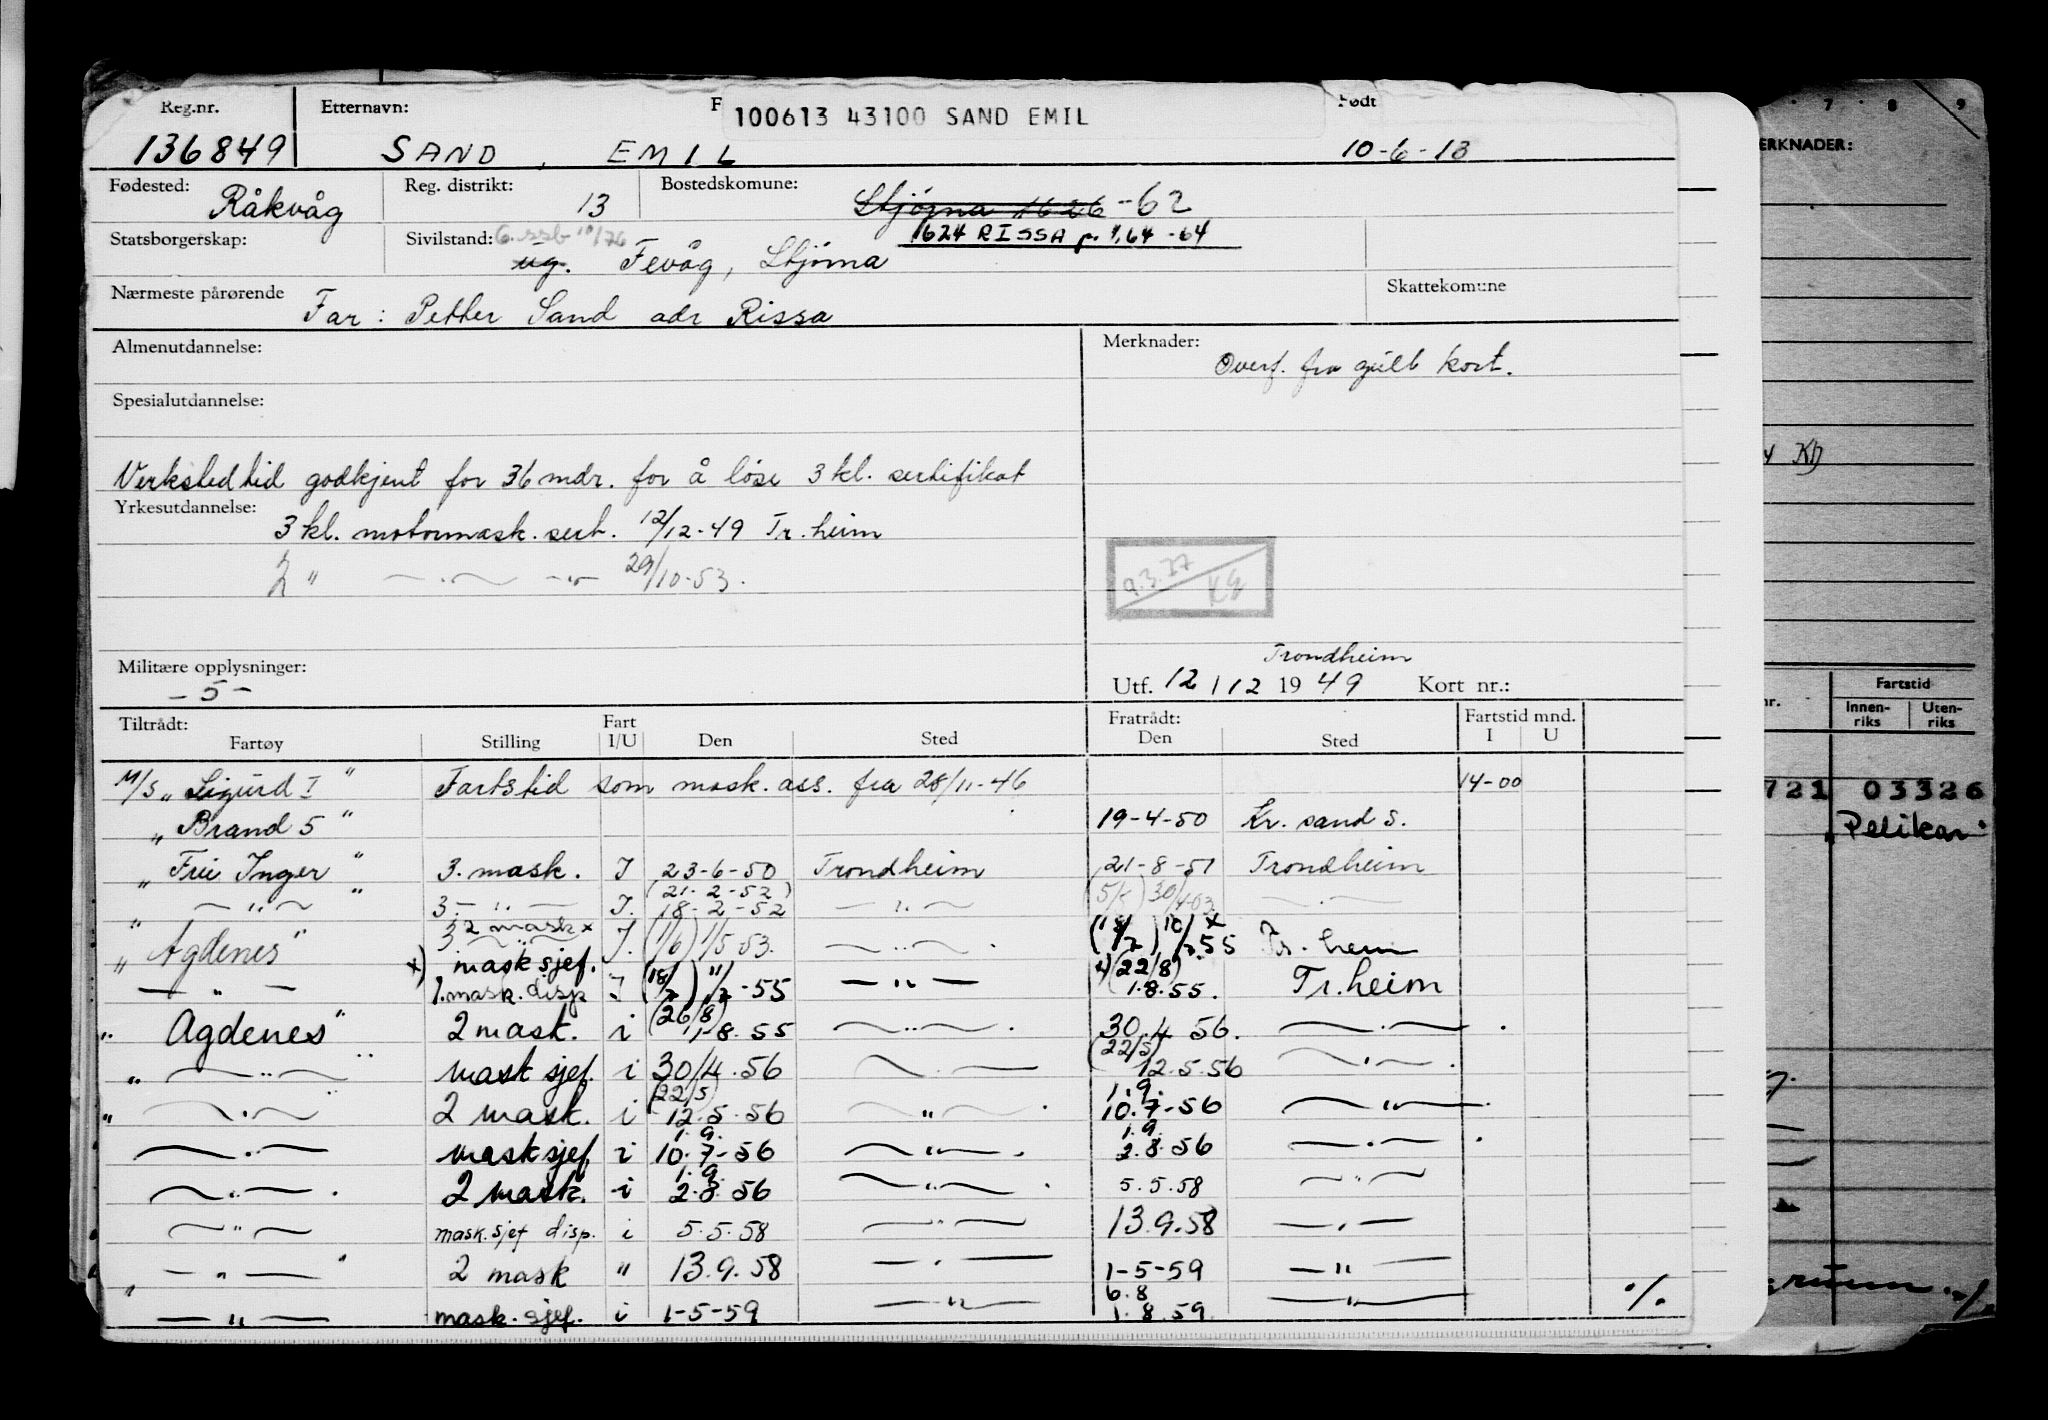 Reg.nr. Etternavn: F 100613 43100 SAND EMIL Født
136849 SAND, EMIL 10-6-13
Fødested: Råkvåg Reg. distrikt: 13 Bostedskomune: Stjørna 1626 -62
Statsborgerskap: Sivilstand: G. ssb 10/76 1624 RISSA p. 1/1,64 -64
ug. Fevåg, Stjørna
Nærmeste pårørende Skattekomune
Far: Petter Sand adr Rissa
Almenutdannelse: Merknader:
Overf. fra gult kort.
Spesialutdannelse:
Verkstedtid godkjent for 36 mdr. for å løse 3 kl. sertifikat
Yrkesutdannelse:
3 kl. motormask. sert. 12/12-49 Tr.heim
2 " —.— —"— 29/10-53.
9.3.77
Militære opplysninger: Trondheim
- 5 - Utf. 12/12 1949 Kort nr.:
Tiltrådt: Fart Fratrådt: Fartstid mnd.
Fartøy Stilling I/U Den Sted Den Sted I U
M/S "Sigurd I" Fartstid som mask. ass. fra 28/11-46 14-00
" Brand 5 " 19-4-50 Kr. sand S.
" Frie Inger " 3. mask. I 23-6-50 Trondheim 21-8-51 Trondheim
(21-2-52)
" —"— " 3. —"— I. 18-2-52 —"— (5/5) 30/4-53 —.—
2 mask x
" Agdenes " 3. —"— I. (1/6) 1/5 53. —"— (18/7) 10/7 x 55 Tr. heim
x) mask sjef.
— " — 1. mask. disp I (18/7) 11/7-55 — " — x) (22/8) 1.8.55. Tr.heim
" Agdenes " 2 mask. i (26/8) 1-8.55 —"— 30.4 56. —.—
" —"— mask sjef. i 30/4.56 —.— (22/5) 12.5.56 —.—
" —.— 2 mask. i (22/5) 12.5.56 — " — 1.9. 10.7-56 — " —
—.— mask sjef i 1.9. 10.7-56 —"— 1.9. 2.8.56 —.—
—"— 2 mask. i 1.9. 2.8.56 —"— 5.5.58 —"—
— " — mask. sjef disp. i 5.5.58 —"— 13.9.58 —.—
— " — 2 mask " 13.9.58 —.— 1-5-59 — " —
" — " — mask. sjef. i 1-5-59 —"— 6.8 1.8.59. —"— ./.
7 8 9
ERKNADER:
nr. Fartstid
Innen-riks Uten-riks
721 03326
"Pelikan"